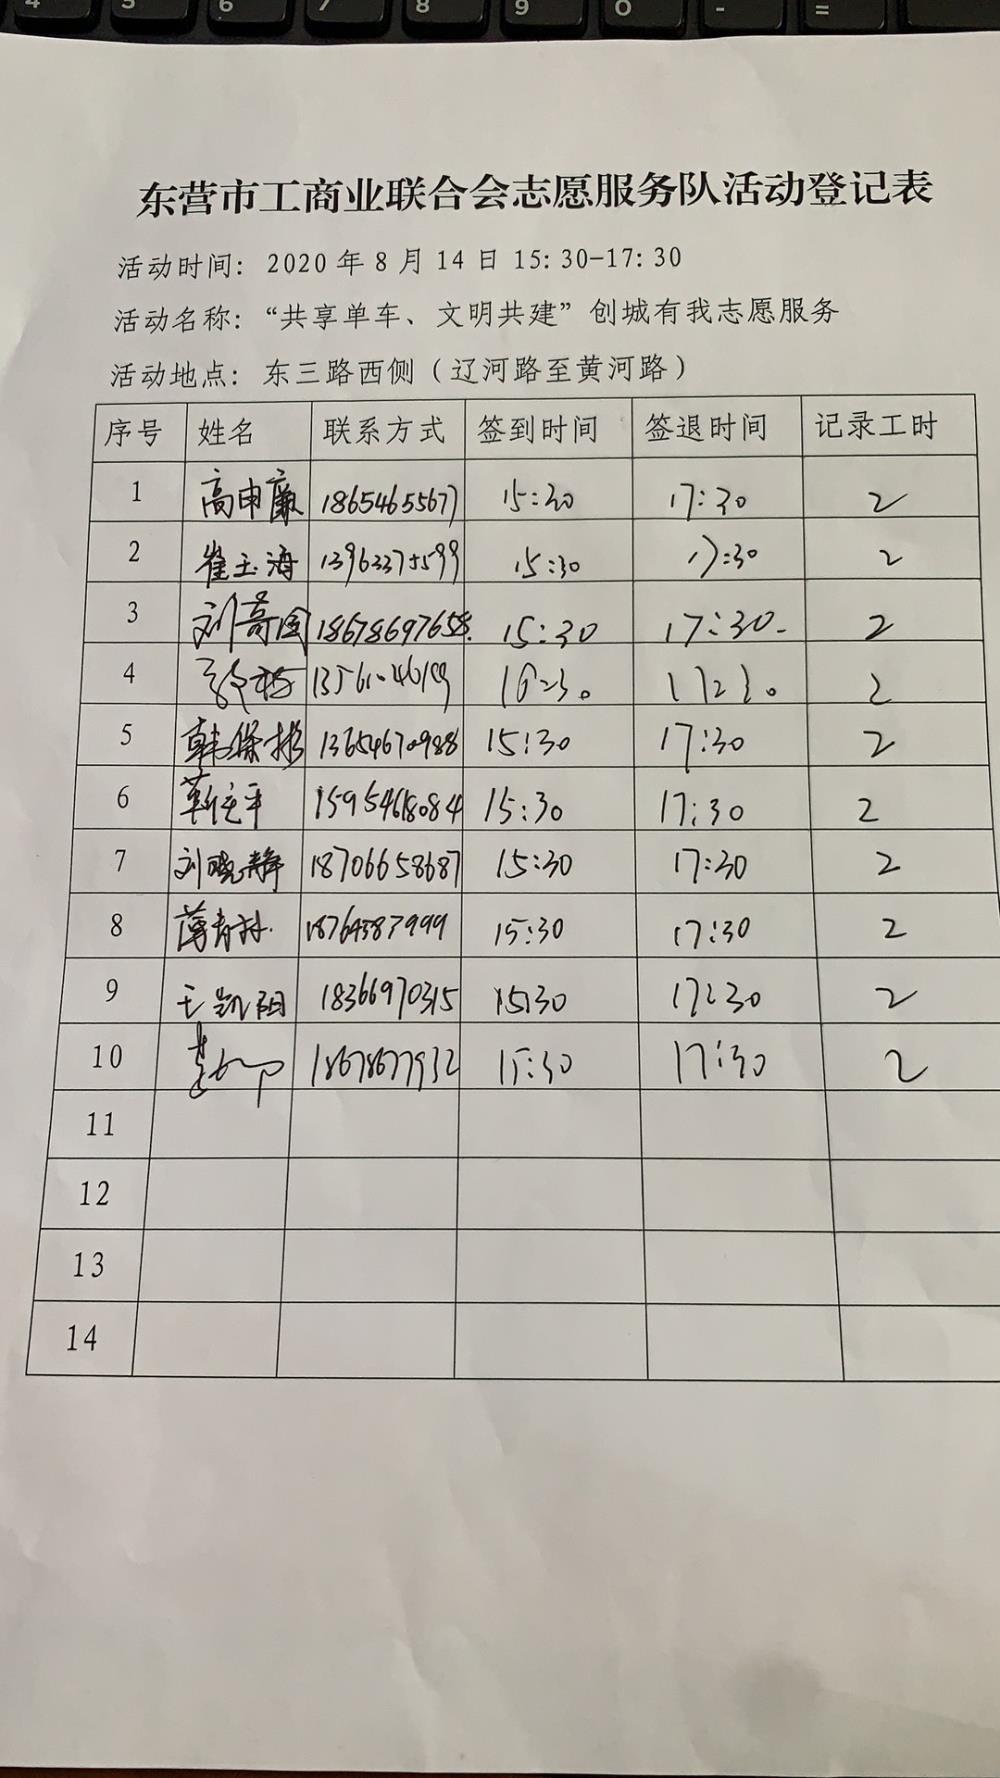 东营市工商业联合会志愿服务队活动登记表
活动时间: 2020 年 8 月 14 日 15: 30-17: 30
活动名称: “共享单车、文明共建”创城有我志愿服务
活动地点: 东三路西侧（辽河路至黄河路）
序号 姓名 联系方式 签到时间 签退时间 记录工时
1 高申廉 18654655677 15:30 17:30 2
2 崔玉海 13963375599 15:30 17:30 2
3 刘奇国 18678697658 15:30 17:30 2
4 17:30 2
5 韩保彬 13654670988 15:30 17:30 2
6 15954618084 15:30 17:30 2
7 刘晓静 18706658687 15:30 17:30 2
8 薄青林 15:30 17:30 2
9 王凯阳 18366970315 15:30 17:30 2
10 18678677932 15:30 17:30 2
11
12
13
14